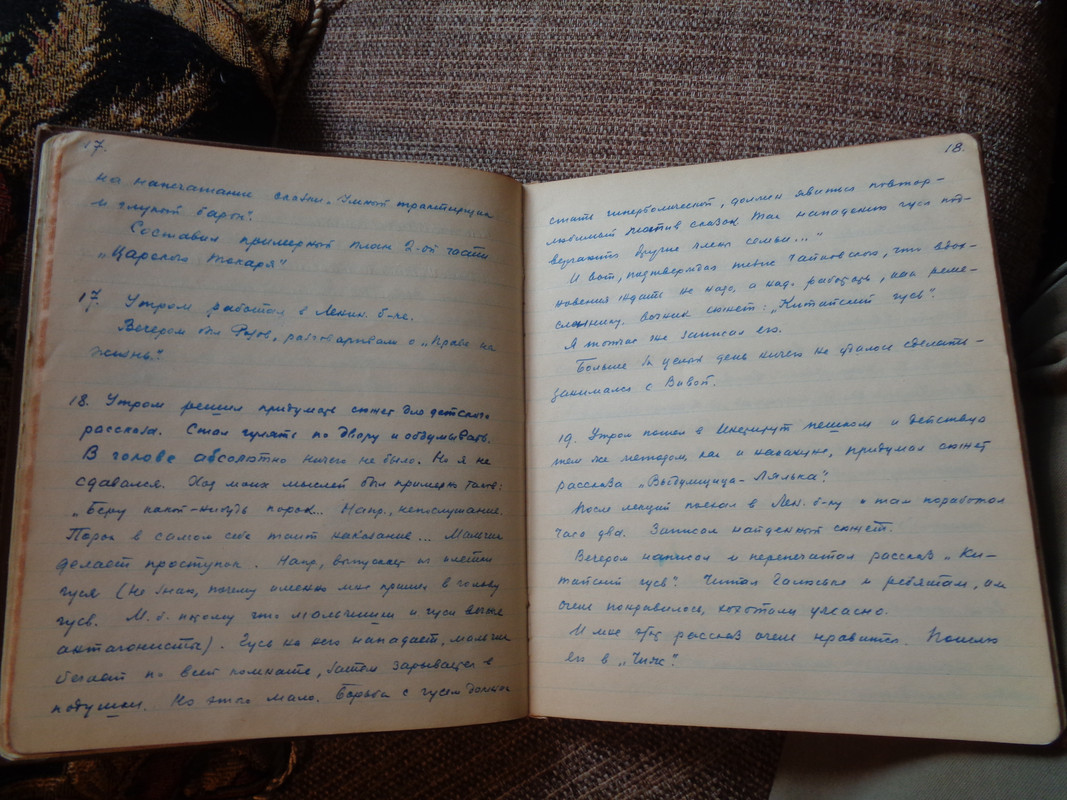 17.
на напечатание сказки „Умный трактирщик
и глупый барон“.
Составил примерный план 2-ой части
„Царского токаря“.
17. Утром работал в Ленин. б-ке.
Вечером был Розов, разговаривали о „Праве на
жизнь“.
18. Утром решил придумать сюжет для детского
рассказа. Стал гулять по двору и обдумывать.
В голове абсолютно ничего не было. Но я не
сдавался. Ход моих мыслей был примерно таков:
„Беру какой-нибудь порок... Напр., непослушание.
Порок в самом себе таит наказание... Мальчик
делает проступок. Напр., выпускает из клетки
гуся (не знаю, почему именно мне пришел в голову
гусь. М.б. потому что мальчишки и гуси вечные
антагонисты). Гусь на него нападает, мальчик
бегает по всей комнате, затем зарывается в
подушки. Но этого мало. Борьба с гусем должна
18.
стать гиперболической, должен явиться повтор-
любимый мотив сказок. Так нападению гуся под-
вергаются другие члены семьи...“
И вот, подтвердился тезис Чайковского, что вдох-
новения ждать не надо, а надо работать, как реме-
сленнику. Возник сюжет: „Китайский гусь“.
Я тотчас же записал его.
Больше за целый день ничего не удалось сделать -
занимался с Вивой.
19. Утром пошел в Институт пешком и действуя
тем же методом, как и накануне, придумал сюжет
рассказа „Выдумщица-Лялька“.
После лекций поехал в Лен. б-ку и там поработал
часа два. Записал найденный сюжет.
Вечером написал и перепечатал рассказ „Ки-
тайский гусь“. Читал Галюське и ребятам, им
очень понравилось, хохотали ужасно.
И мне этот рассказ очень нравится. Пошлю
его в „Чиж“.